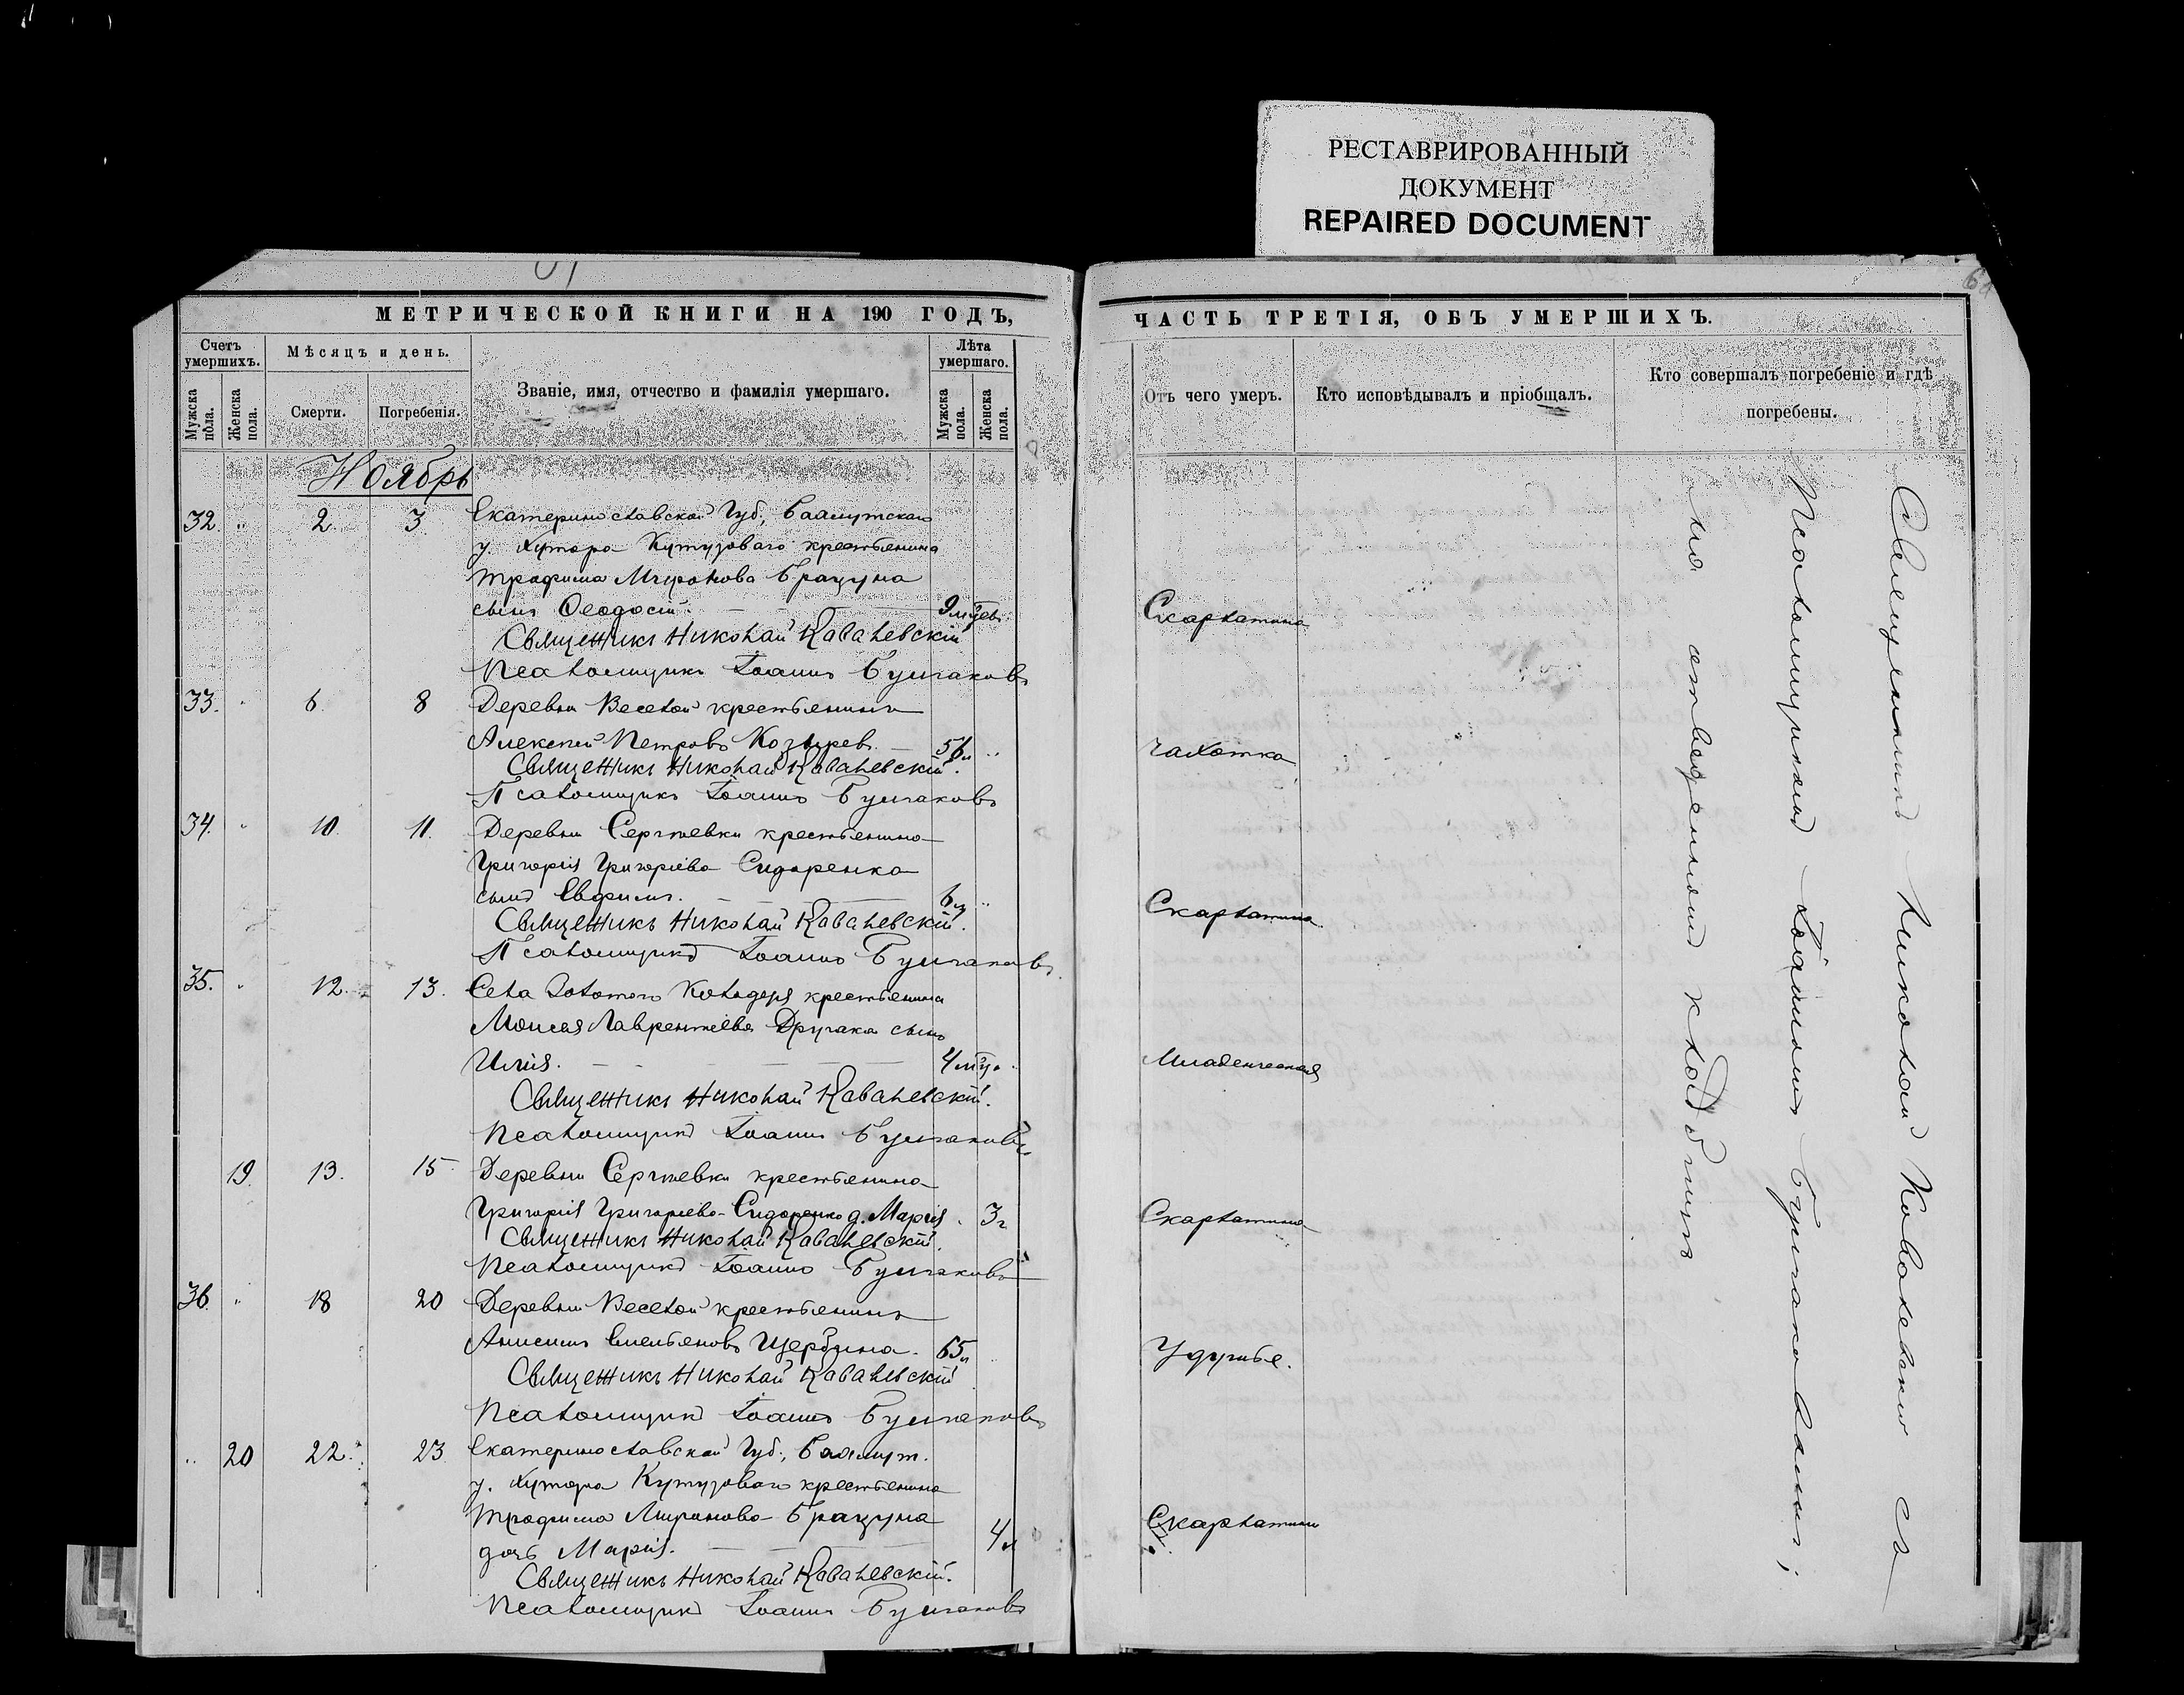 РЕСТАВРИРОВАННЫЙ
ДОКУМЕНТ
REPAIRED DOCUMENT
МЕТРИЧЕСКОЙ КНИГИ НА 190 ГОДЪ,
Счетъ умершихъ.
Мужска пола.
Женска пола.
Мѣсяцъ и день.
Смерти.
Погребенія.
Званіе, имя, отчество и фамилія умершаго.
Лѣта умершаго.
Мужска пола.
Женска пола.
Ноябрь
32. " 2. 3 Екатеринославской Губ., Бахмутскаго
у. хутора Кутузоваго крестьянина
Трофима Миронова Брацуна
сынъ Ѳеодосій. 9 мцев.
Священникъ Николай Ковалевскій
Псаломщикъ Іоаннъ Булгаковъ
33. " 6. 8 Деревни Веселой крестьянинъ
Алексѣй Петровъ Козырев. 56 л "
Священникъ Николай Ковалевскій.
Псаломщикъ Іоаннъ Булгаковъ
34. " 10. 11. Деревни Сергѣевки крестьянина
Григорія Григоріева Сидоренка
сынъ Евфимъ. "
Священникъ Николай Ковалевскій.
Псаломщикъ Іоаннъ Булгаковъ.
35. " 12. 13. Села Золотого Колодезя крестьянина
Моисея Лаврентіева Другака сынъ
Илія. 4 мца
Священникъ Николай Ковалевскій.
Псаломщикъ Іоаннъ Булгаковъ.
19. 13. 15 Деревни Сергѣевки крестьянина
Григорія Григоріева Сидоренко д. Марія. 3 г
Священникъ Николай Ковалевскій.
Псаломщикъ Іоаннъ Булгаковъ
36. " 18 20 Деревни Веселой крестьянинъ
Анисимъ Емельяновъ Щербина. 65 л
Священникъ Николай Ковалевскій
Псаломщикъ Іоаннъ Булгаковъ
" 20 22. 23. Екатеринославской Губ., Бахмут.
у. хутора Кутузоваго крестьянина
Трофима Миронова Брацуна
дочь Марія. 4 л
Священникъ Николай Ковалевскій.
Псаломщикъ Іоаннъ Булгаковъ
ЧАСТЬ ТРЕТІЯ, ОБЪ УМЕРШИХЪ.
Отъ чего умеръ.
Кто исповѣдывалъ и пріобщалъ.
Кто совершалъ погребеніе и гдѣ погребены.
Скарлатина
Чахотка
Скарлатина
Младенческая
Скарлатина
Удушье.
Скарлатина
Священникъ Николай Ковалевскій съ
Псаломщикомъ Іоанномъ Булгаковымъ,
на отведенномъ кладбищѣ